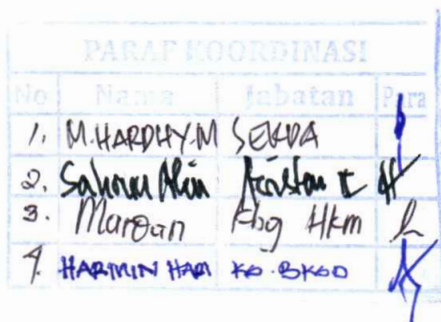 PARAF KOORDINASI
No Nama Jabatan Para
1. M. HARDHY. M SEKDA
2. Asisten I
3. Marwan Kbg Hkm
4. HARMIN HARI KA. BKAD